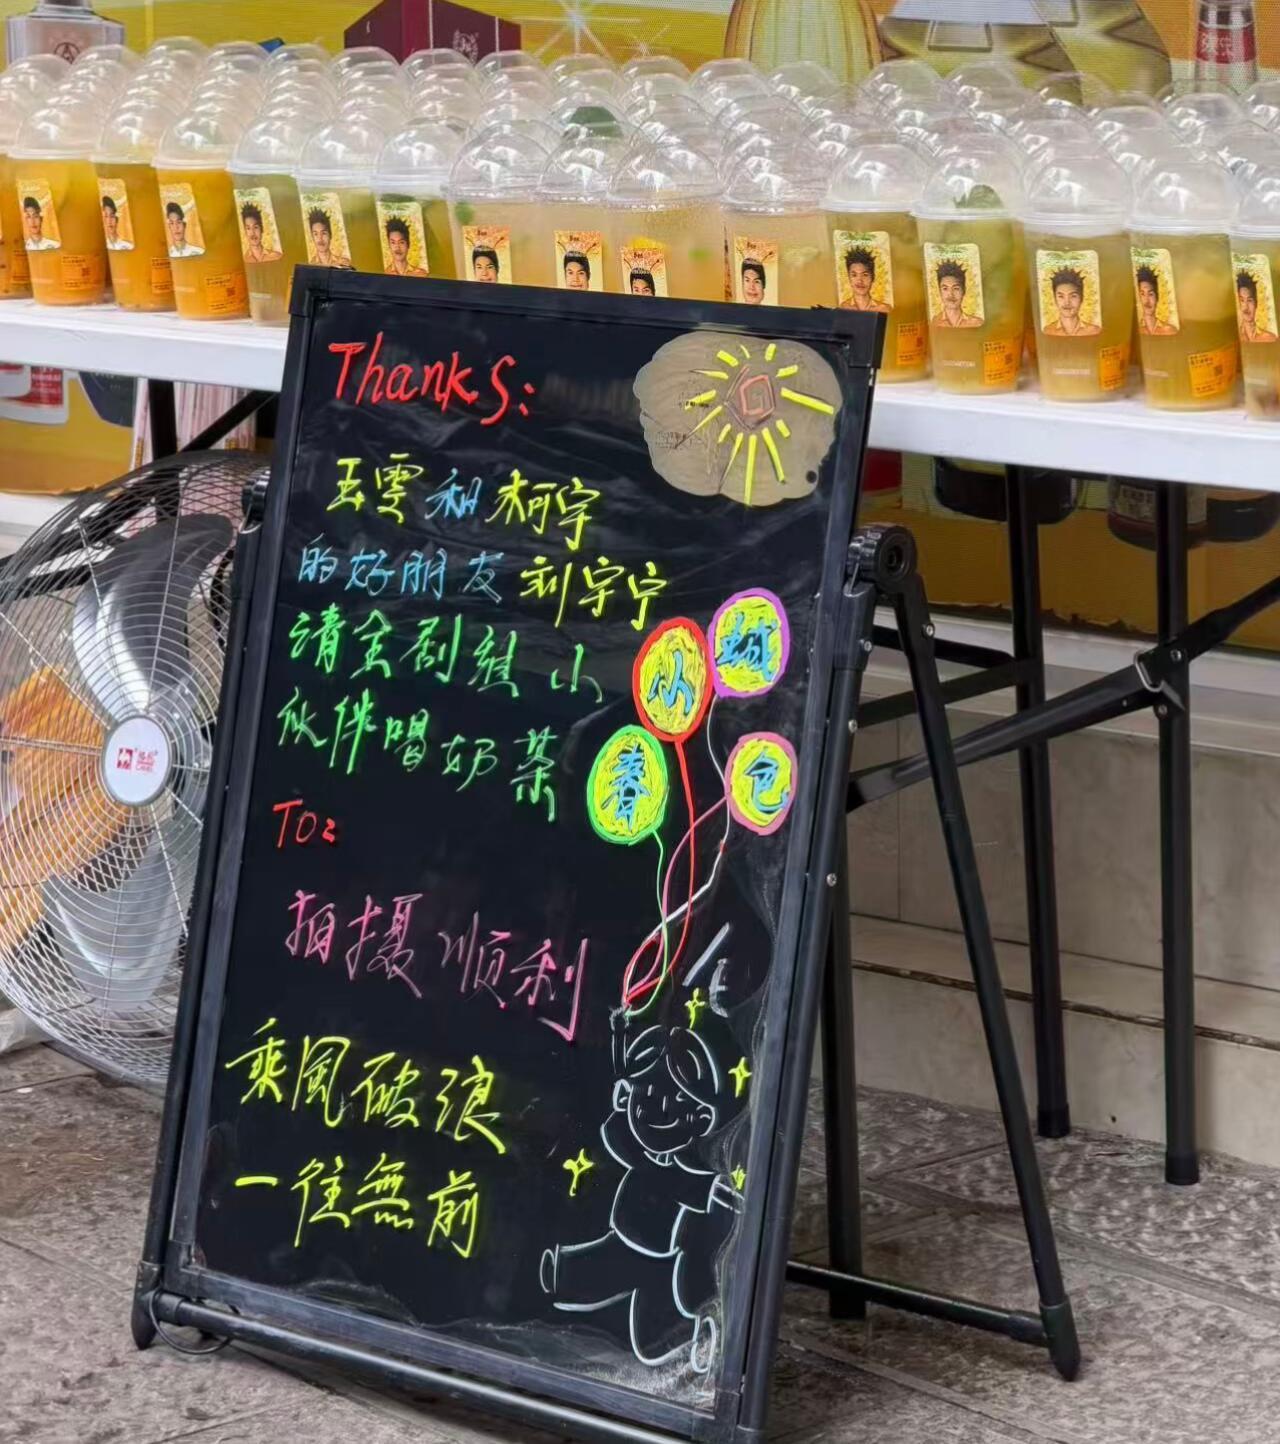 Thanks:
玉雯和柯宇
的好朋友刘宇宁
请全剧组小
伙伴喝奶茶
小城
春色
To:
拍摄顺利
乘風破浪
一往無前